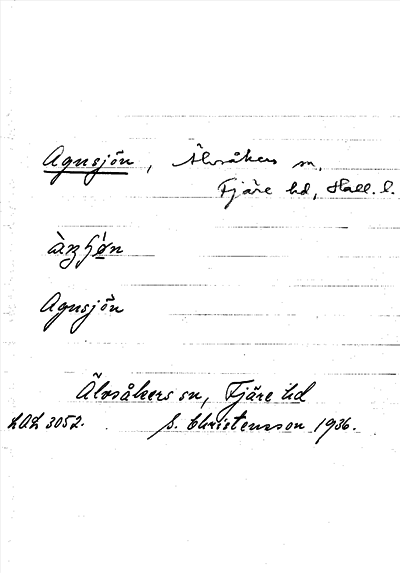 Agnsjön, Älvsåkers sn,
Fjäre hd, Hall. l.
Agnsjön
Älvsåkers sn, Fjäre hd
LAL 3052. S. Christensson 1936.